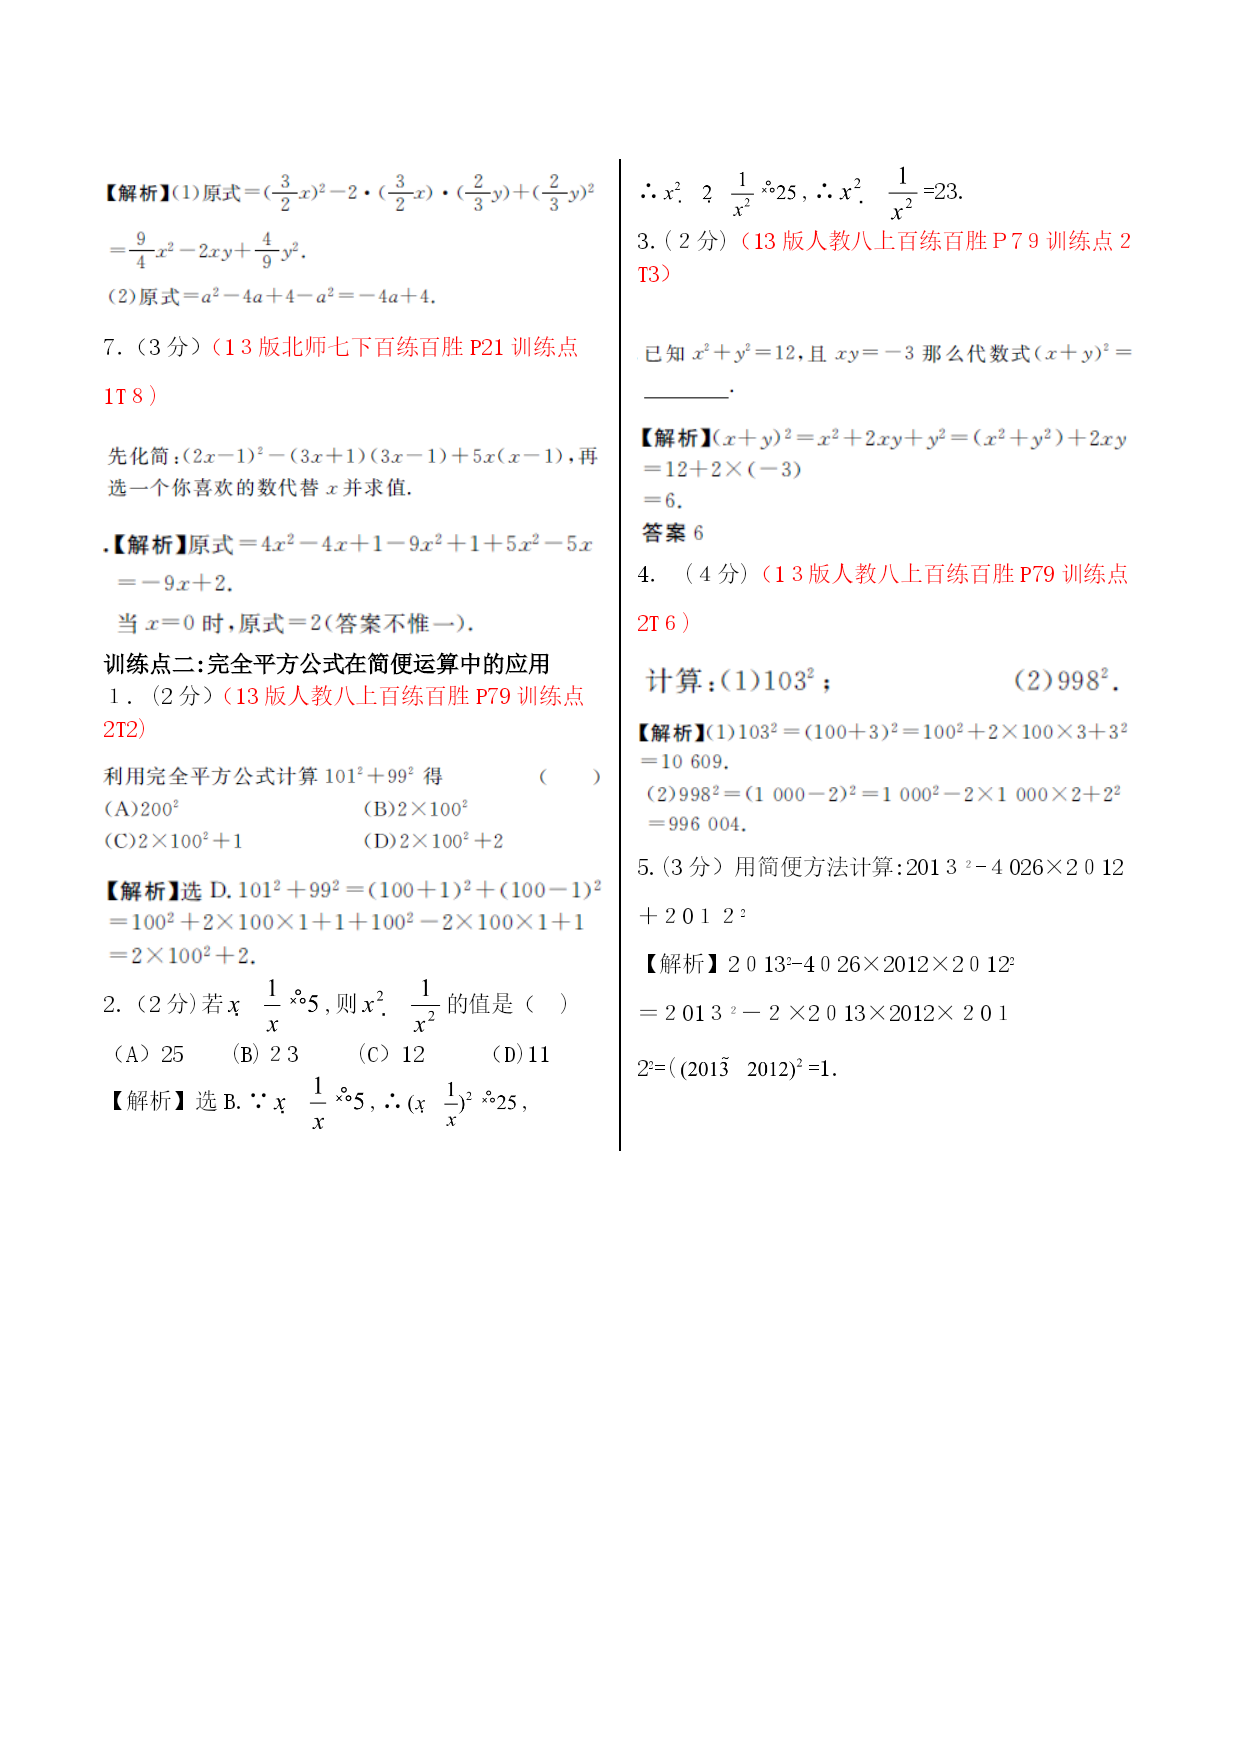 【解析】(1)原式=(3/2 x)²-2·(3/2 x)·(2/3 y)+(2/3 y)²
=9/4 x²-2xy+4/9 y².
(2)原式=a²-4a+4-a²=-4a+4.
7.（3分）（13版北师七下百练百胜P21训练点
1T8）
先化简:(2x-1)²-(3x+1)(3x-1)+5x(x-1),再
选一个你喜欢的数代替x并求值.
.【解析】原式=4x²-4x+1-9x²+1+5x²-5x
=-9x+2.
当x=0时,原式=2(答案不惟一).
训练点二:完全平方公式在简便运算中的应用
1.（2分）（13版人教八上百练百胜P79训练点
2T2）
利用完全平方公式计算101²+99²得 ( )
(A)200² (B)2×100²
(C)2×100²+1 (D)2×100²+2
【解析】选D.101²+99²=(100+1)²+(100-1)²
=100²+2×100×1+1+100²-2×100×1+1
=2×100²+2.
2.（2分)若x 1/x 5,则x² 1/x² 的值是（ ）
（A）25 (B)23 (C）12 （D)11
【解析】选B.∵x 1/x 5,∴(x 1/x)² 25,
∴x² 2 1/x² 25,∴x² 1/x²=23.
3.(2分)（13版人教八上百练百胜P79训练点2
T3）
已知x²+y²=12,且xy=-3那么代数式(x+y)²=
________.
【解析】(x+y)²=x²+2xy+y²=(x²+y²)+2xy
=12+2×(-3)
=6.
答案 6
4. （4分)（13版人教八上百练百胜P79训练点
2T6）
计算:(1)103²; (2)998².
【解析】(1)103²=(100+3)²=100²+2×100×3+3²
=10 609.
(2)998²=(1 000-2)²=1 000²-2×1 000×2+2²
=996 004.
5.(3分）用简便方法计算:2013²-4026×2012
+2012²
【解析】2013²-4026×2012×2012²
=2013²-2×2013×2012×201
2²=((2013 2012)²=1.